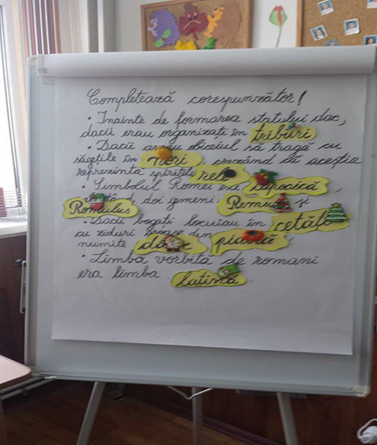 Completează corespunzător!
• Înainte de formarea statului dac,
dacii erau organizați în triburi
• Dacii aveau obiceiul să tragă cu
săgețile în nori, crezând că aceștia
reprezintă spiritele rele
• Simbolul Romei era lupoaică,
doi gemeni: Remus și
Romulus
• Dacii bogați locuiau în cetăți
cu ziduri groase din piatră
numite dave
• Limba vorbită de romani
era limba latină